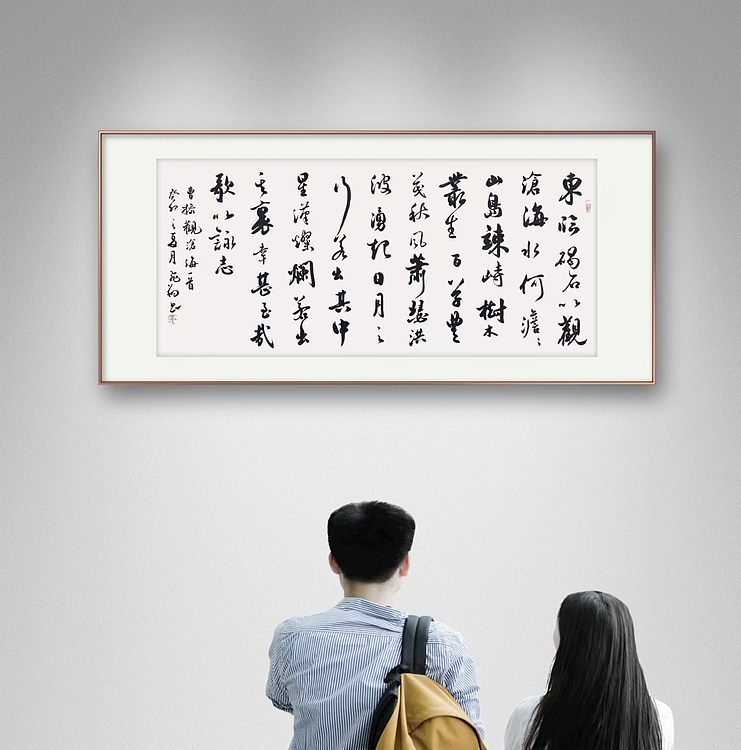 東臨碣石以觀
滄海水何澹〻
山島竦峙樹木
叢生百草豐
茂秋風蕭瑟洪
波湧起日月之
行若出其中
星漢燦爛若出
其裏幸甚至哉
歌以詠志
曹操觀滄海一首
癸卯之夏月